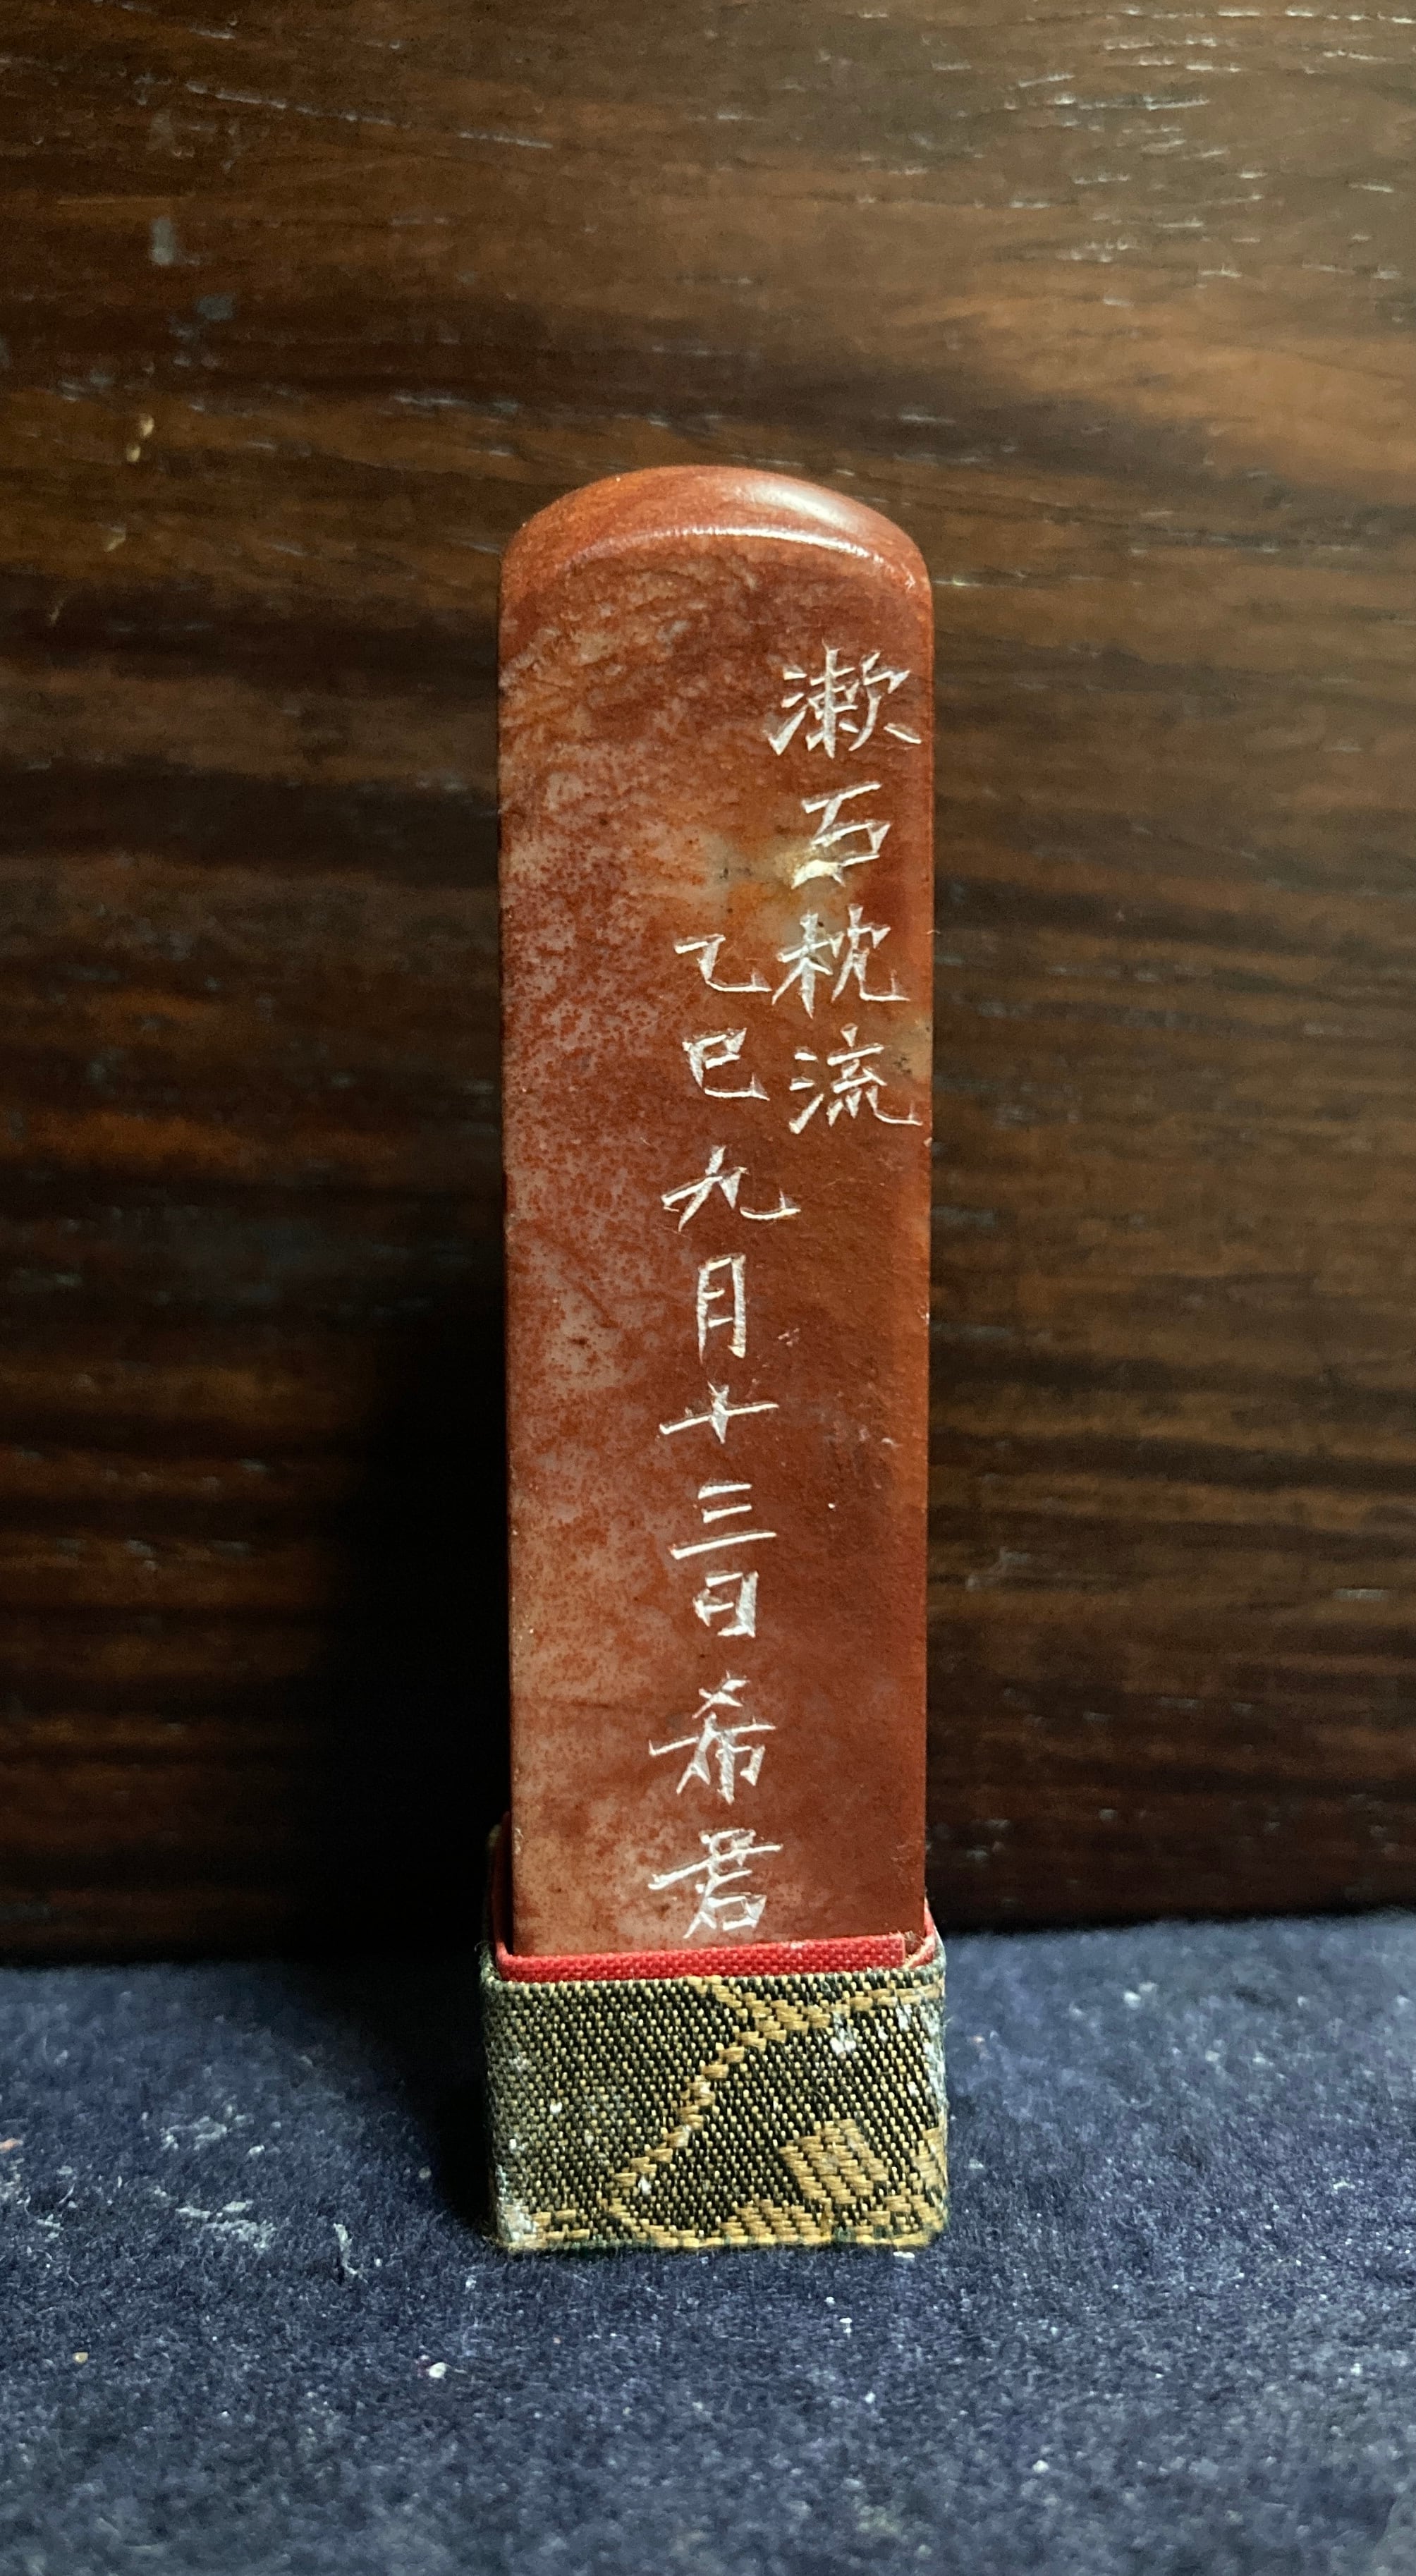 漱石枕流
乙巳九月十三日希君